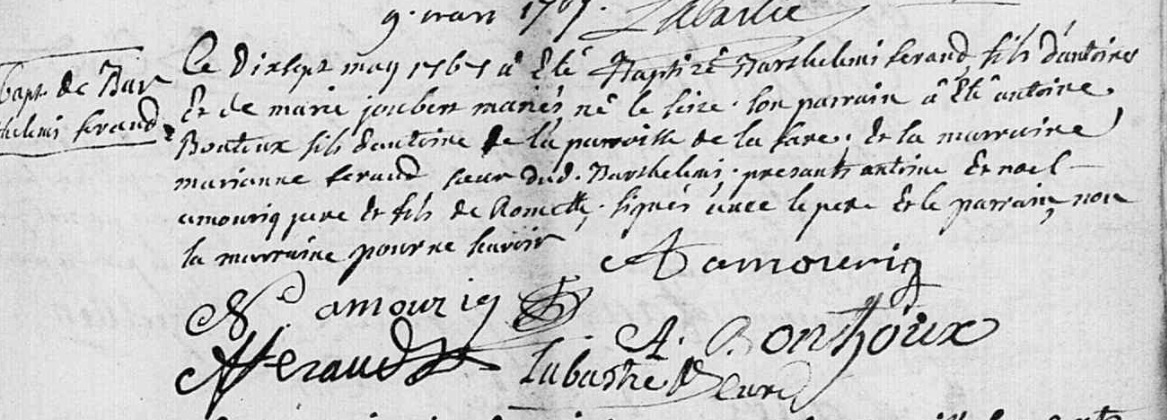 9. mars 1767. Labastie
Bapt. de Bar
thelemi feraud
Le Dixsept may 1767 a Eté Baptizé Barthelemi feraud fils d'antoine
Et de marie joubert mariés né le seize. son parrain â Eté antoine
Bontoux fils d'antoine de la parroisse de la fare, et la marraine
marianne feraud sœur dud. Barthelemi. presants antoine Et noel
amouriq pere Et fils de Romette. signés avec le pere Et le parrain, non
la marraine pour ne savoir
A amouriq
N. amouriq
A. Bonthoux
A feraud
Labastie Curé